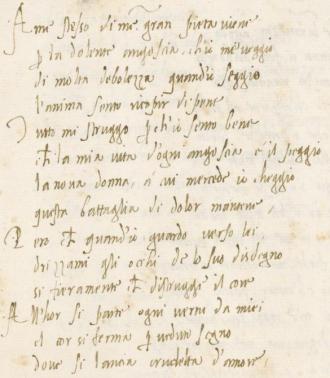 A me stesso di me gran pieta viene
p la dolente angoscia, ch'io me veggio
di molta debolezza quand'io seggio
l'anima sento ricoprir di pene
Tutto mi struggo p ch'io sento bene
ch la mia vita d'ogni angoscia e il peggio
la nova donna, a cui mercede io cheggio
questa battaglia di dolor mantene,
Pero ch quand'io guardo verso lei
drizzami gli occhi de lo suo disdegno
si fieramente ch distrugge il core
Allhor si parte ogni vertu da miei
el cor si ferma p veduto segno
dove si lancia crudelta d'amore,